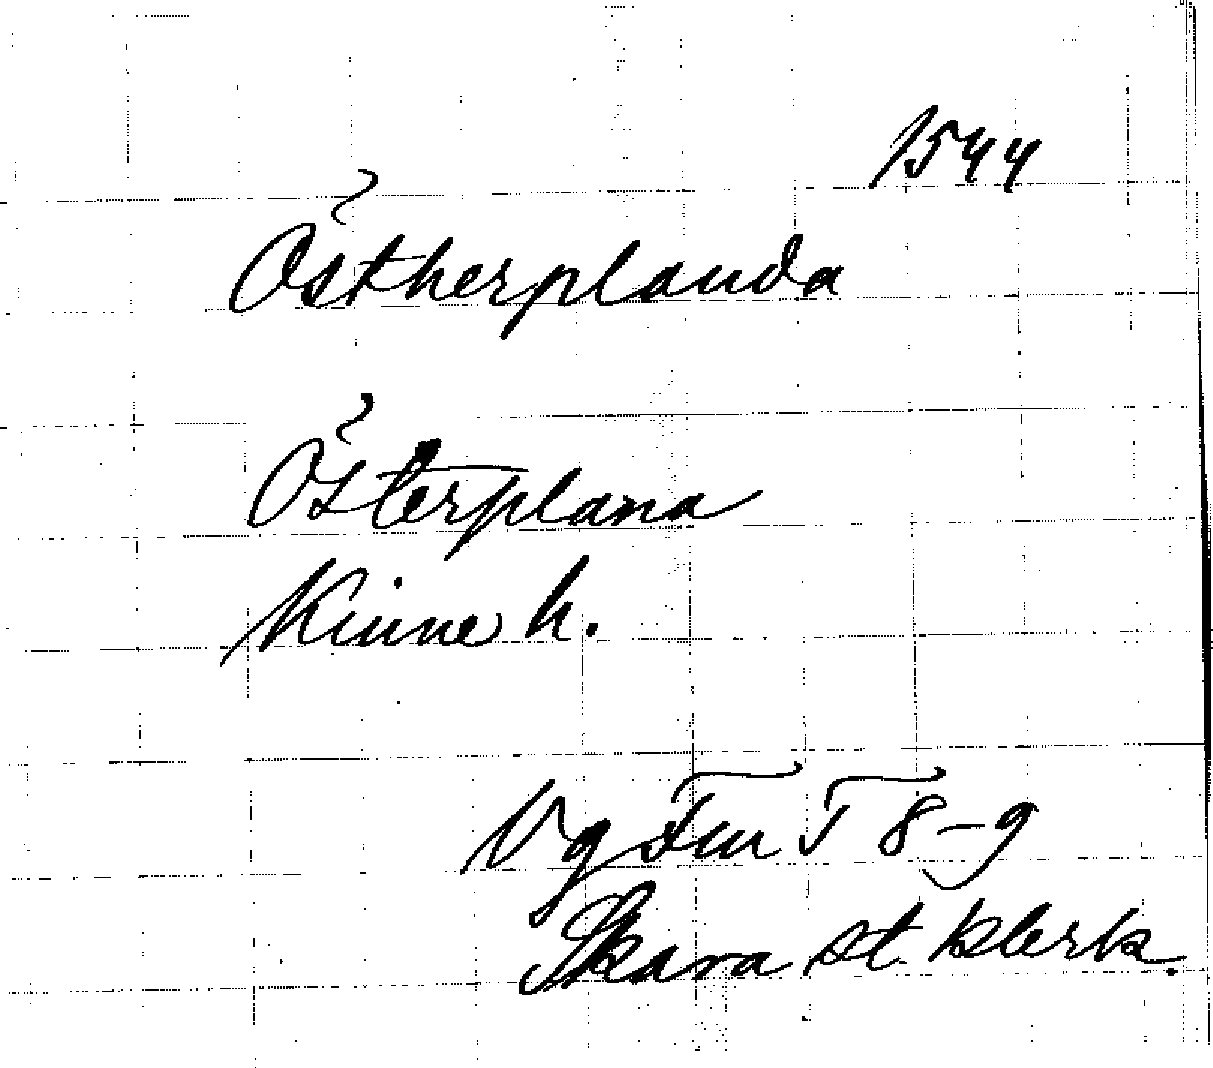 1544
Östherplauda
Österplana
Kinne h.
Vg Fur T 8-9
Skara st. klerk.